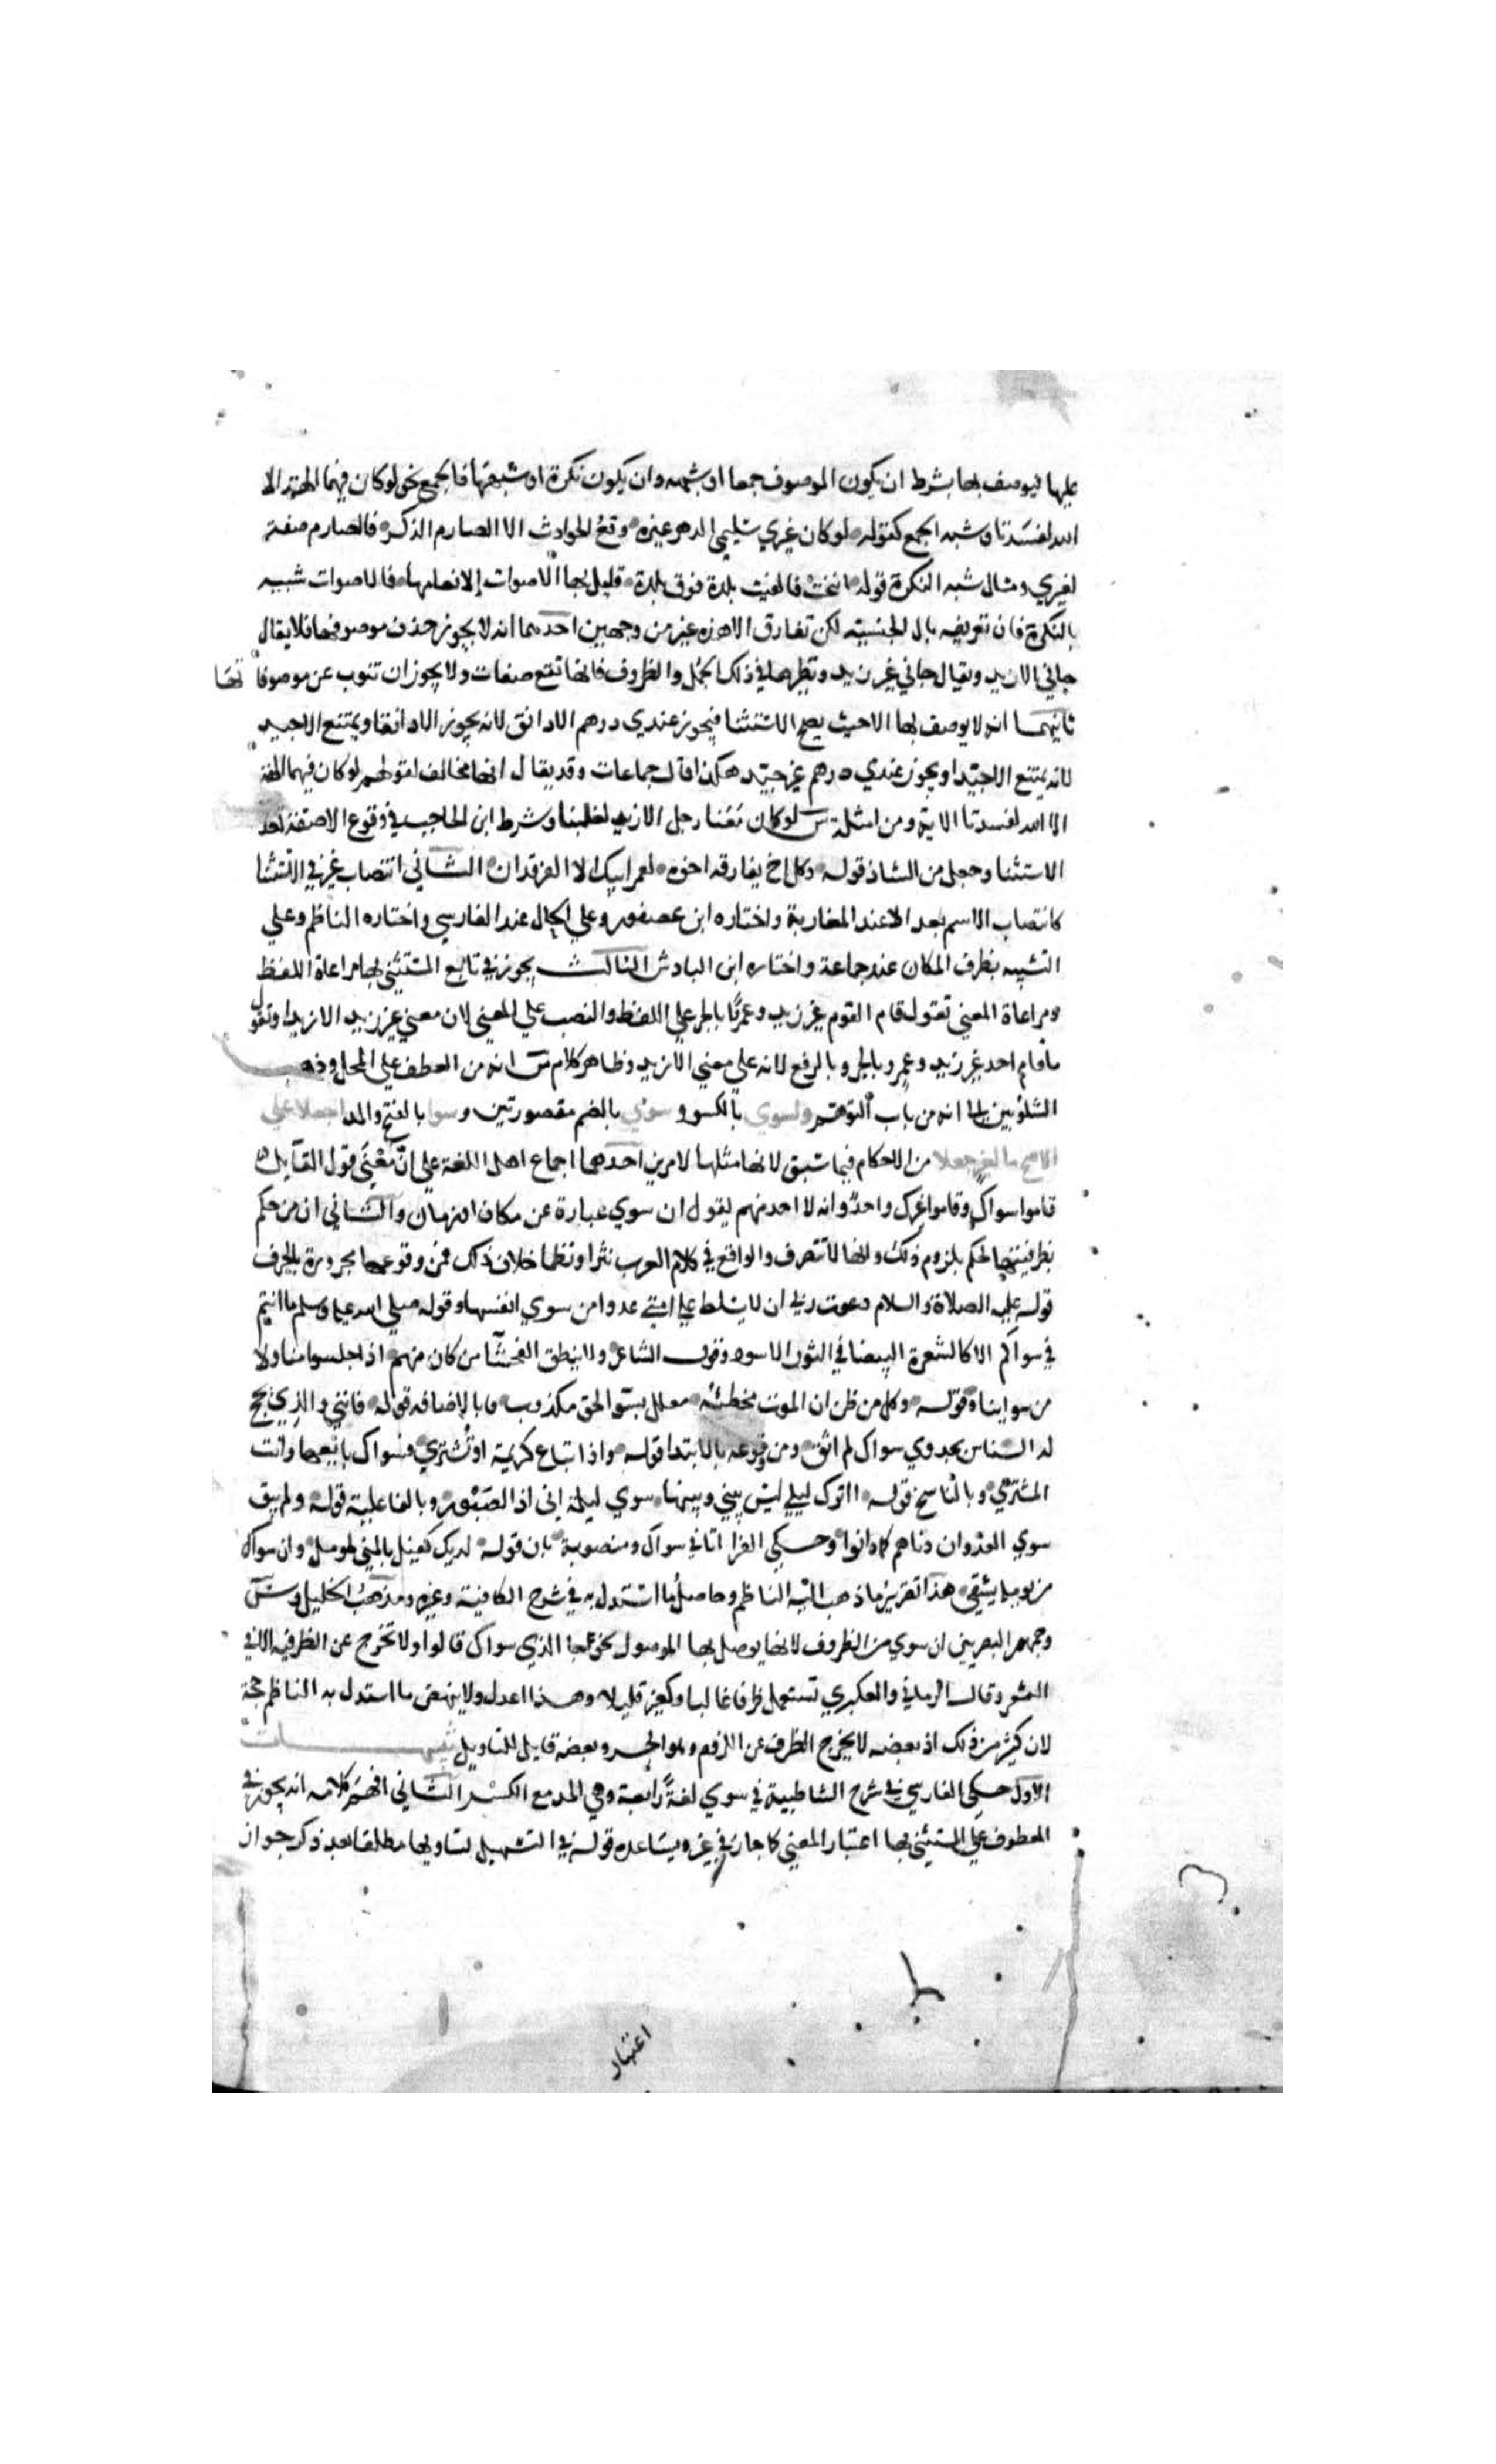 عليها فيوصف بها بشرط ان يكون الموصوف جمعا او شبهه وان يكون نكرة او شبهها فالجمع نحو لوكان فيهما الهة الا
الله لفسدتا وشبه الجمع كقوله لوكان غيري سليمي الدهر غيره وقع الحوادث الا الصارم الذكر فالصارم صفة
لغيري ومثال شبه النكرة قوله انيخت فالقت بلدة فوق بلدة قليل بها الاصوات إلا بغامها فالاصوات شبيه
بالنكرة فان تعريفه بال الجنسيه لكن تفارق الا هذه غير من وجهين احدهما انه لا يجوز حذف موصوفها فلا يقال
جاني الا زيد ويقال جاني غير زيد ونظيرها في ذلك الجمل والظروف فانها تقع صفات ولا يجوز ان تنوب عن موصوفاتها
ثانيهما انه لا يوصف بها الا حيث يصح الاستثنا فيجوز عندي درهم الا دانق لانه يجوز الا دانقا ويمتنع الا جيد
لانه يمتنع الا جيدا ويجوز عندي درهم غير جيد هكذا قال جماعات وقد يقال انها مخالف لقولهم لوكان فيهما الهة
الا الله لفسدتا الاية ومن امثلة س لوكان معنا رجل الا زيد لغلبنا وشرط ابن الحاجب في وقوع الا صفة تعذر
الاستثنا وجعل من الشاذ قوله وكل اخ يفارقه اخوه لعمر ابيك الا الفرقدان الثاني انتصاب غير في الاستثنا
كانتصاب الاسم بعد الا عند المغاربة واختاره ابن عصفور وعلي الحال عند الفارسي واختاره الناظم وعلي
التشبيه بظرف المكان عند جماعة واختاره ابن الباذش الثالث يجوز في تابع المستثني بها مراعاة اللفظ
ومراعاة المعني تقول قام القوم غير زيد وعمرو بالجر علي اللفظ والنصب علي المعني لان معني غير زيد الا زيدا وتقول
ما قام احد غير زيد وعمرو بالجر وبالرفع لانه علي معني الا زيد وظاهر كلام س انه من العطف علي المحل وذهب
الشلوبين الي انه من باب التوهم ولسوي بالكسر و سوي بالضم مقصورتين و سوا بالفتح والمد اجعلا علي
الاصح ما لغير جعلا من الاحكام فيما سبق لانها مثلها لامرين احدهما اجماع اهل اللغة علي ان معني قول القايل
قاموا سواك وقاموا غيرك واحد وانه لا احد منهم يقول ان سوي عبارة عن مكان او زمان والثاني ان من حكم
بظرفيتها حكم بلزوم ذلك وانها لا تتصرف والواقع في كلام العرب نثرا ونظما خلاف ذلك فمن وقوعها مجرورة بالحرف
قوله عليه الصلاة والسلام دعوت ربي ان لا يسلط علي امتي عدوا من سوي انفسها وقوله صلي الله عليه وسلم ما انتم
في سواكم الا كالشعرة البيضا في الثور الاسود وقول الشاعر ولا ينطق الفحشا من كان منهم اذا جلسوا منا ولا
من سواينا قوله وكل من ظن ان الموت مخطئه معلل بسوا الحق مكذوب وبالاضافه قوله فانني والذي يحج
له الناس بجدوي سواك لم اثق ومن وقوعه بالابتدا قوله واذا تباع كريمة او تشتري فسواك بايعها وانت
المشتري وبالناسخ قوله ااترك ليلي ليس بيني وبينها سوي ليلة اني اذا لصبور وبالفاعلية قوله ولم يبق
سوي العدوان دناهم كما دانوا وحكي الفرا اتاني سواك ومنصوبة بان قوله لديك كفيل بالمني لمومل وان سواك
من يومله يشقي هذا تقرير ما ذهب اليه الناظم وحاصل ما استدل به في شرح الكافية وغيره ومذهب الخليل وس
وجمهور البصريين ان سوي من الظروف لانها يوصل بها الموصول نحو جا الذي سواك قالوا ولا تخرج عن الظرفيه الا في
الشعر وقال الرماني والعكبري تستعمل ظرفا غالبا وكغير قليلا وهذا اعدل ولا ينهض ما استدل به الناظم حجة
لان كثيرا من ذلك اذ بعضه لا يخرج الظرف عن اللزوم وهو الجر وبعضه قابل للتاويل تنبيهات
الاول حكي الفارسي في شرح الشاطبية في سوي لغة رابعة وهي المد مع الكسر الثاني افهم كلامه انه يجوز في
المعطوف علي المستثني بها اعتبار المعني كما جاز في غير ويساعده قوله في التسهيل تساويها مطلقا بعد ذكر جواز
اعتبار